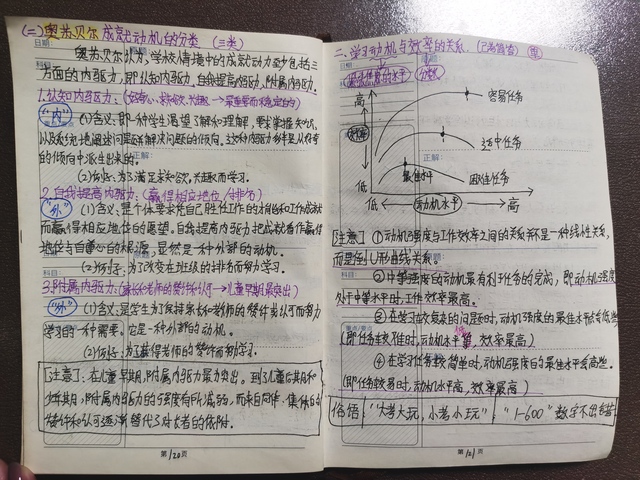 (二)奥苏贝尔成就动机的分类 (三类)
奥苏贝尔认为,学校情境中的成就动力至少包括三
方面的内驱力,即认知内驱力、自我提高内驱力、附属内驱力.
1.认知内驱力:(好奇心、求知欲、兴趣→最重要而稳定的)
"内" (1)含义:即一种学生渴望了解和理解,要求掌握知识,
以及系统地阐述问题并解决问题的倾向。这种内驱力多半是从好奇
的倾向中派生出来的。
(2)例:为了满足求知欲、兴趣而学习.
2.自我提高内驱力:(赢得相应地位/排名)
"外" (1)含义:是个体要求凭自己胜任工作的才能和工作成就
而赢得相应地位的愿望。自我提高内驱力把成就看作赢得
地位与自尊心的根源,显然是一种外部的动机。
(2)例子:为了改变在班级的排名而努力学习。
3.附属内驱力:(家长和老师的赞许和认可→儿童早期最突出)
"外" (1)含义:是学生为了保持家长和老师的赞许或认可而努力
学习的一种需要,它是一种外部的动机。
(2)例:为了获得老师的赞许而努力学习.
[注意]:在儿童早期,附属内驱力最为突出。到了儿童后期和
少年期,附属内驱力的强度有所减弱,而来自同伴、集体的
赞许和认可逐渐替代了对长者的依附.
第120页
二、学习动机与效率的关系.
(水平)
高
容易任务
适中任务
正解:
最佳水平
困难任务
低
低 动机水平 高
[注意] ①动机强度与工作效率之间的关系并不是一种线性关系,
而是倒U形曲线关系。
②中等强度的动机最有利于任务的完成,即动机强度
处于中等水平时,工作效率最高.
③在学习较复杂的问题时,动机强度的最佳水平会低些
(即任务较难时,动机水平低,效率最高)
④在学习任务较简单时,动机强度的最佳水平会高些.
(即任务较易时,动机水平高,效率最高)
俗语 "大考大玩,小考小玩" "1-600"
第121页